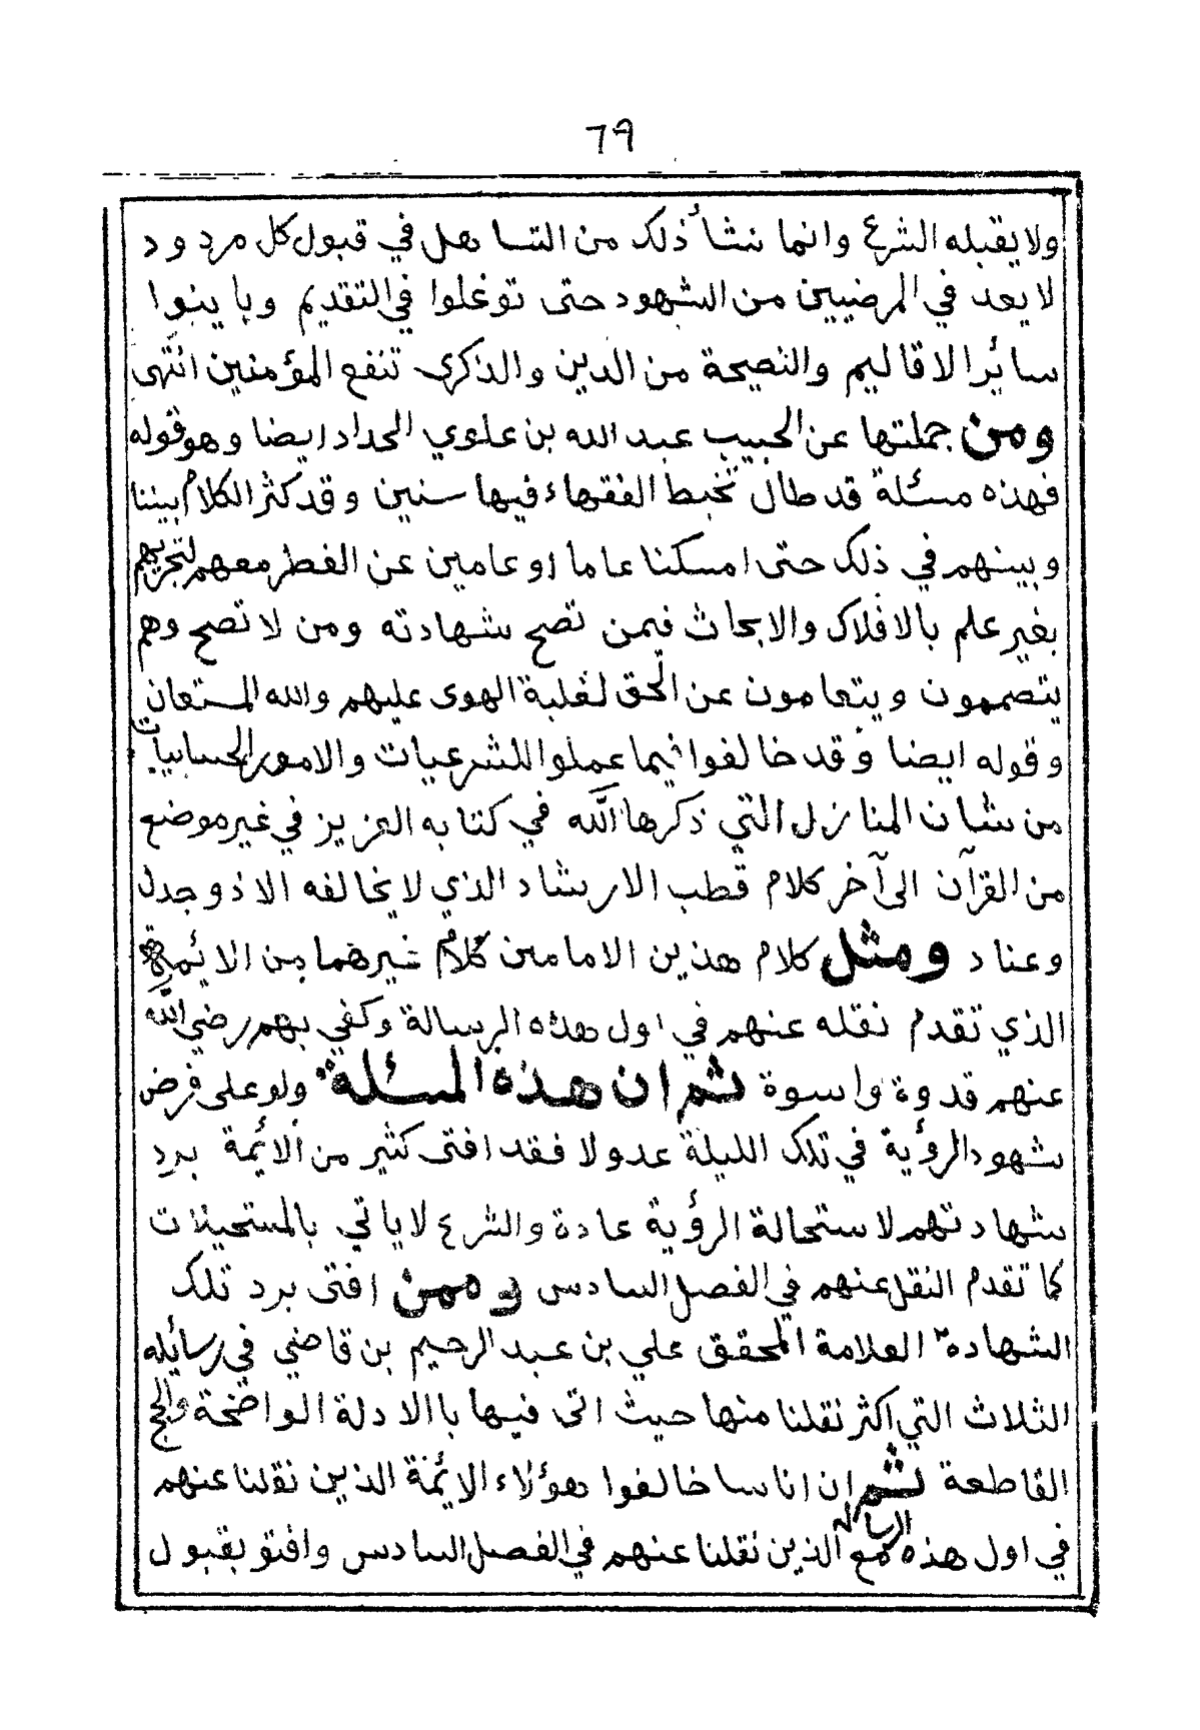 ٦٩
ولا يقبله الشرع وانما نشأ ذلك من التساهل في قبول كل مردود
لا يعد في المرضيين من الشهود حتى توغلوا في التقديم وباينوا
سائر الاقاليم والنصيحة من الدين والذكرى تنفع المؤمنين انتهى
ومن جملتها عن الحبيب عبد الله بن علوي الحداد ايضا وهو قوله
فهذه مسئلة قد طال تخبط الفقهاء فيها سنين وقد كثر الكلام بيننا
وبينهم في ذلك حتى امسكنا عاما او عامين عن الفطر معهم لتجريهم
بغير علم بالافلاك والابحاث فيمن تصح شهادته ومن لا تصح وهم
يتصممون ويتعامون عن الحق لغلبة الهوى عليهم والله المستعان
وقوله ايضا وقد خالفوا فيما عملوا للشرعيات والامور الحسابيات
من شان المنازل التي ذكرها الله في كتابه العزيز في غير موضع
من القرآن الى آخر كلام قطب الارشاد الذي لا يخالفه الا ذو جدل
وعناد ومثل كلام هذين الامامين كلام غيرهما من الائمة
الذي تقدم نقله عنهم في اول هذه الرسالة وكفي بهم رضي الله
عنهم قدوة واسوة ثم ان هذه المسئلة ولو على فرض
شهود الرؤية في تلك الليلة عدولا فقد افتى كثير من الائمة برد
شهادتهم لاستحالة الرؤية عادة والشرع لا ياتي بالمستحيلات
كما تقدم النقل عنهم في الفصل السادس وممن افتى برد تلك
الشهادة العلامة المحقق علي بن عبد الرحيم بن قاضي في رسائله
الثلاث التي اكثر نقلنا منها حيث اتى فيها باالادلة الواضحة والحجج
القاطعة ثم ان اناسا خالفوا هؤلاء الائمة الذين نقلنا عنهم
في اول هذه الرسالة مع الذين نقلنا عنهم في الفصل السادس وافتو بقبول